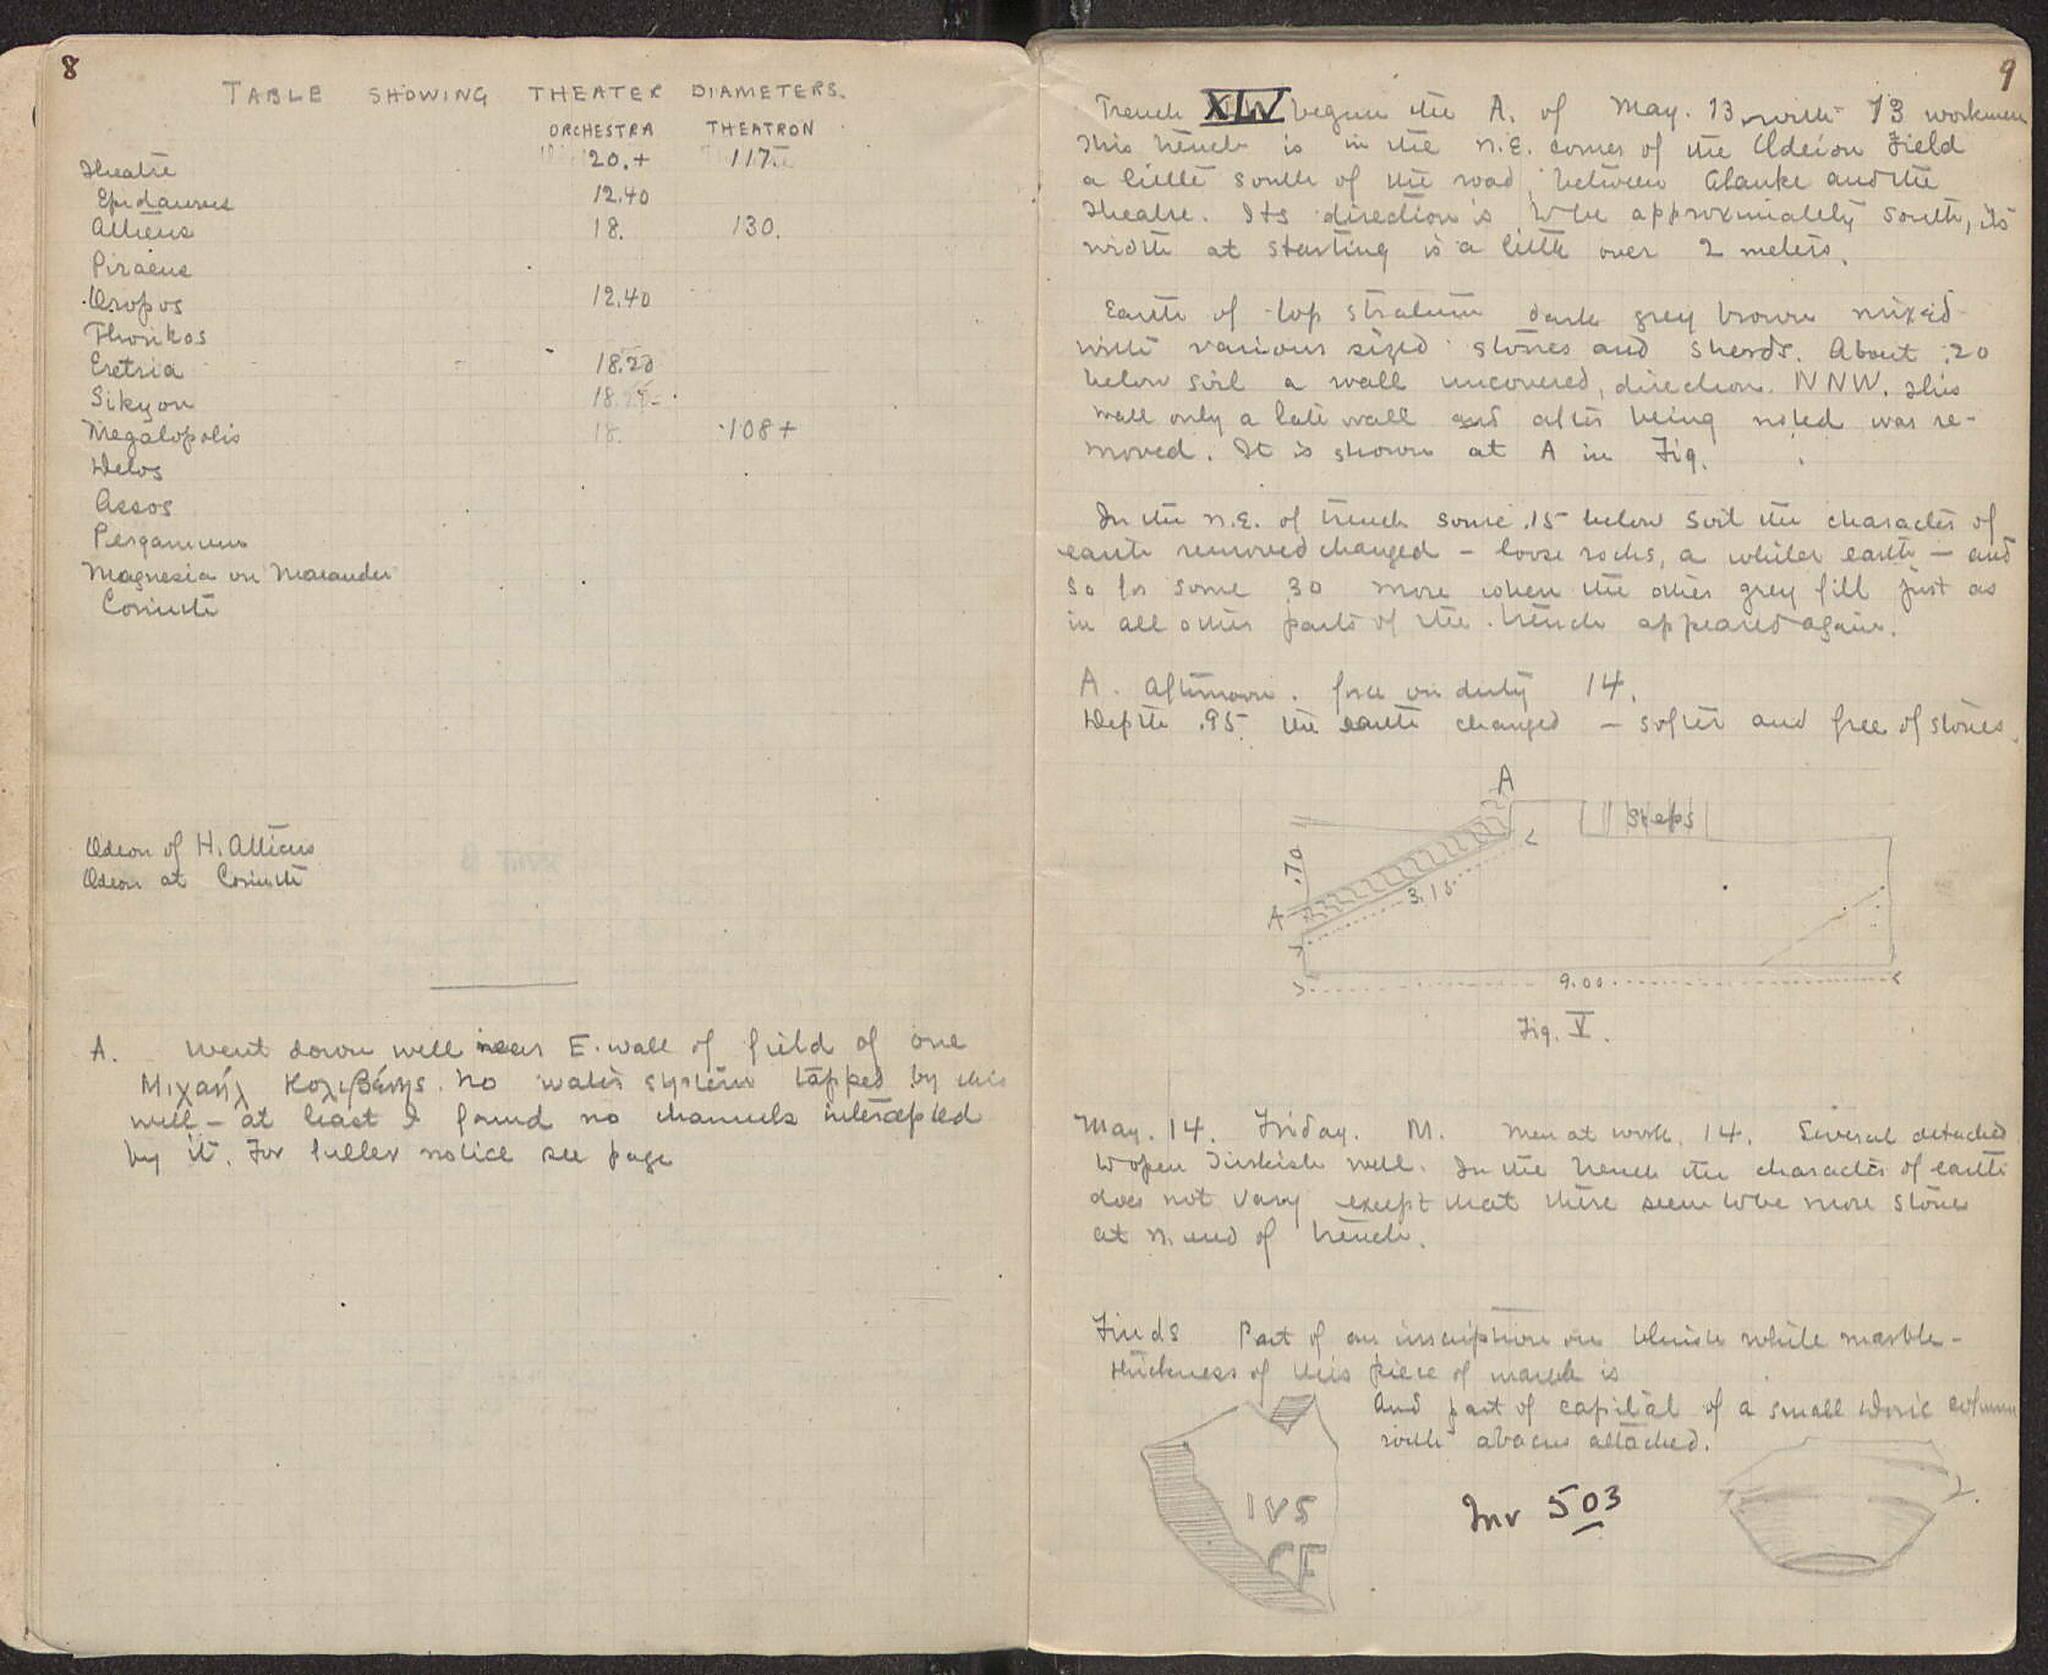 8
TABLE SHOWING THEATER DIAMETERS.
ORCHESTRA THEATRON
Theatre 20.+ 117.
Epidaurus 12.40
Athens 18. 130.
Piraeus
Oropos 12.40
Thorikos
Eretria 18.20
Sikyon 18.
Megalopolis 18. 108+
Delos
Assos
Pergamum
Magnesia on Maeander
Corinth
Odeon of H. Atticus
Odeon at Corinth
A. Went down well near E. wall of field of one
Μιχαήλ No water system tapped by this
well - at least I found no channels intercepted
by it. For fuller notice see page
9
Trench XLIV begun the A. of May. 13 with 13 workmen
This trench is in the N.E. corner of the Odeion Field
a little south of the road, between Glauke and the
Theatre. Its direction is to be approximately south, its
width at starting is a little over 2 meters.
Earth of top stratum dark grey brown mixed
with various sized stones and sherds. About .20
below soil a wall uncovered, direction NNW. This
wall only a late wall and after being noted was re-
moved. It is shown at A in Fig.
In the N.E. of trench some .15 below soil the character of
earth removed changed - loose rocks, a whiter earth - and
so for some .30 more when the other grey fill just as
in all other parts of the trench appeared again.
A. Afternoon. force on duty 14.
Depth .95 the earth changed - softer and free of stones.
A
Steps
.70
A
3.15
9.00
Fig. V.
May. 14. Friday. M. Men at work. 14. Several detached
to open Turkish well. In the trench the character of earth
does not vary except that there seem to be more stones
at N. end of trench.
Finds Part of an inscription on bluish white marble -
thickness of this piece of marble is
and part of capital of a small Doric column
with abacus attached.
IVS
CE
Inv 503